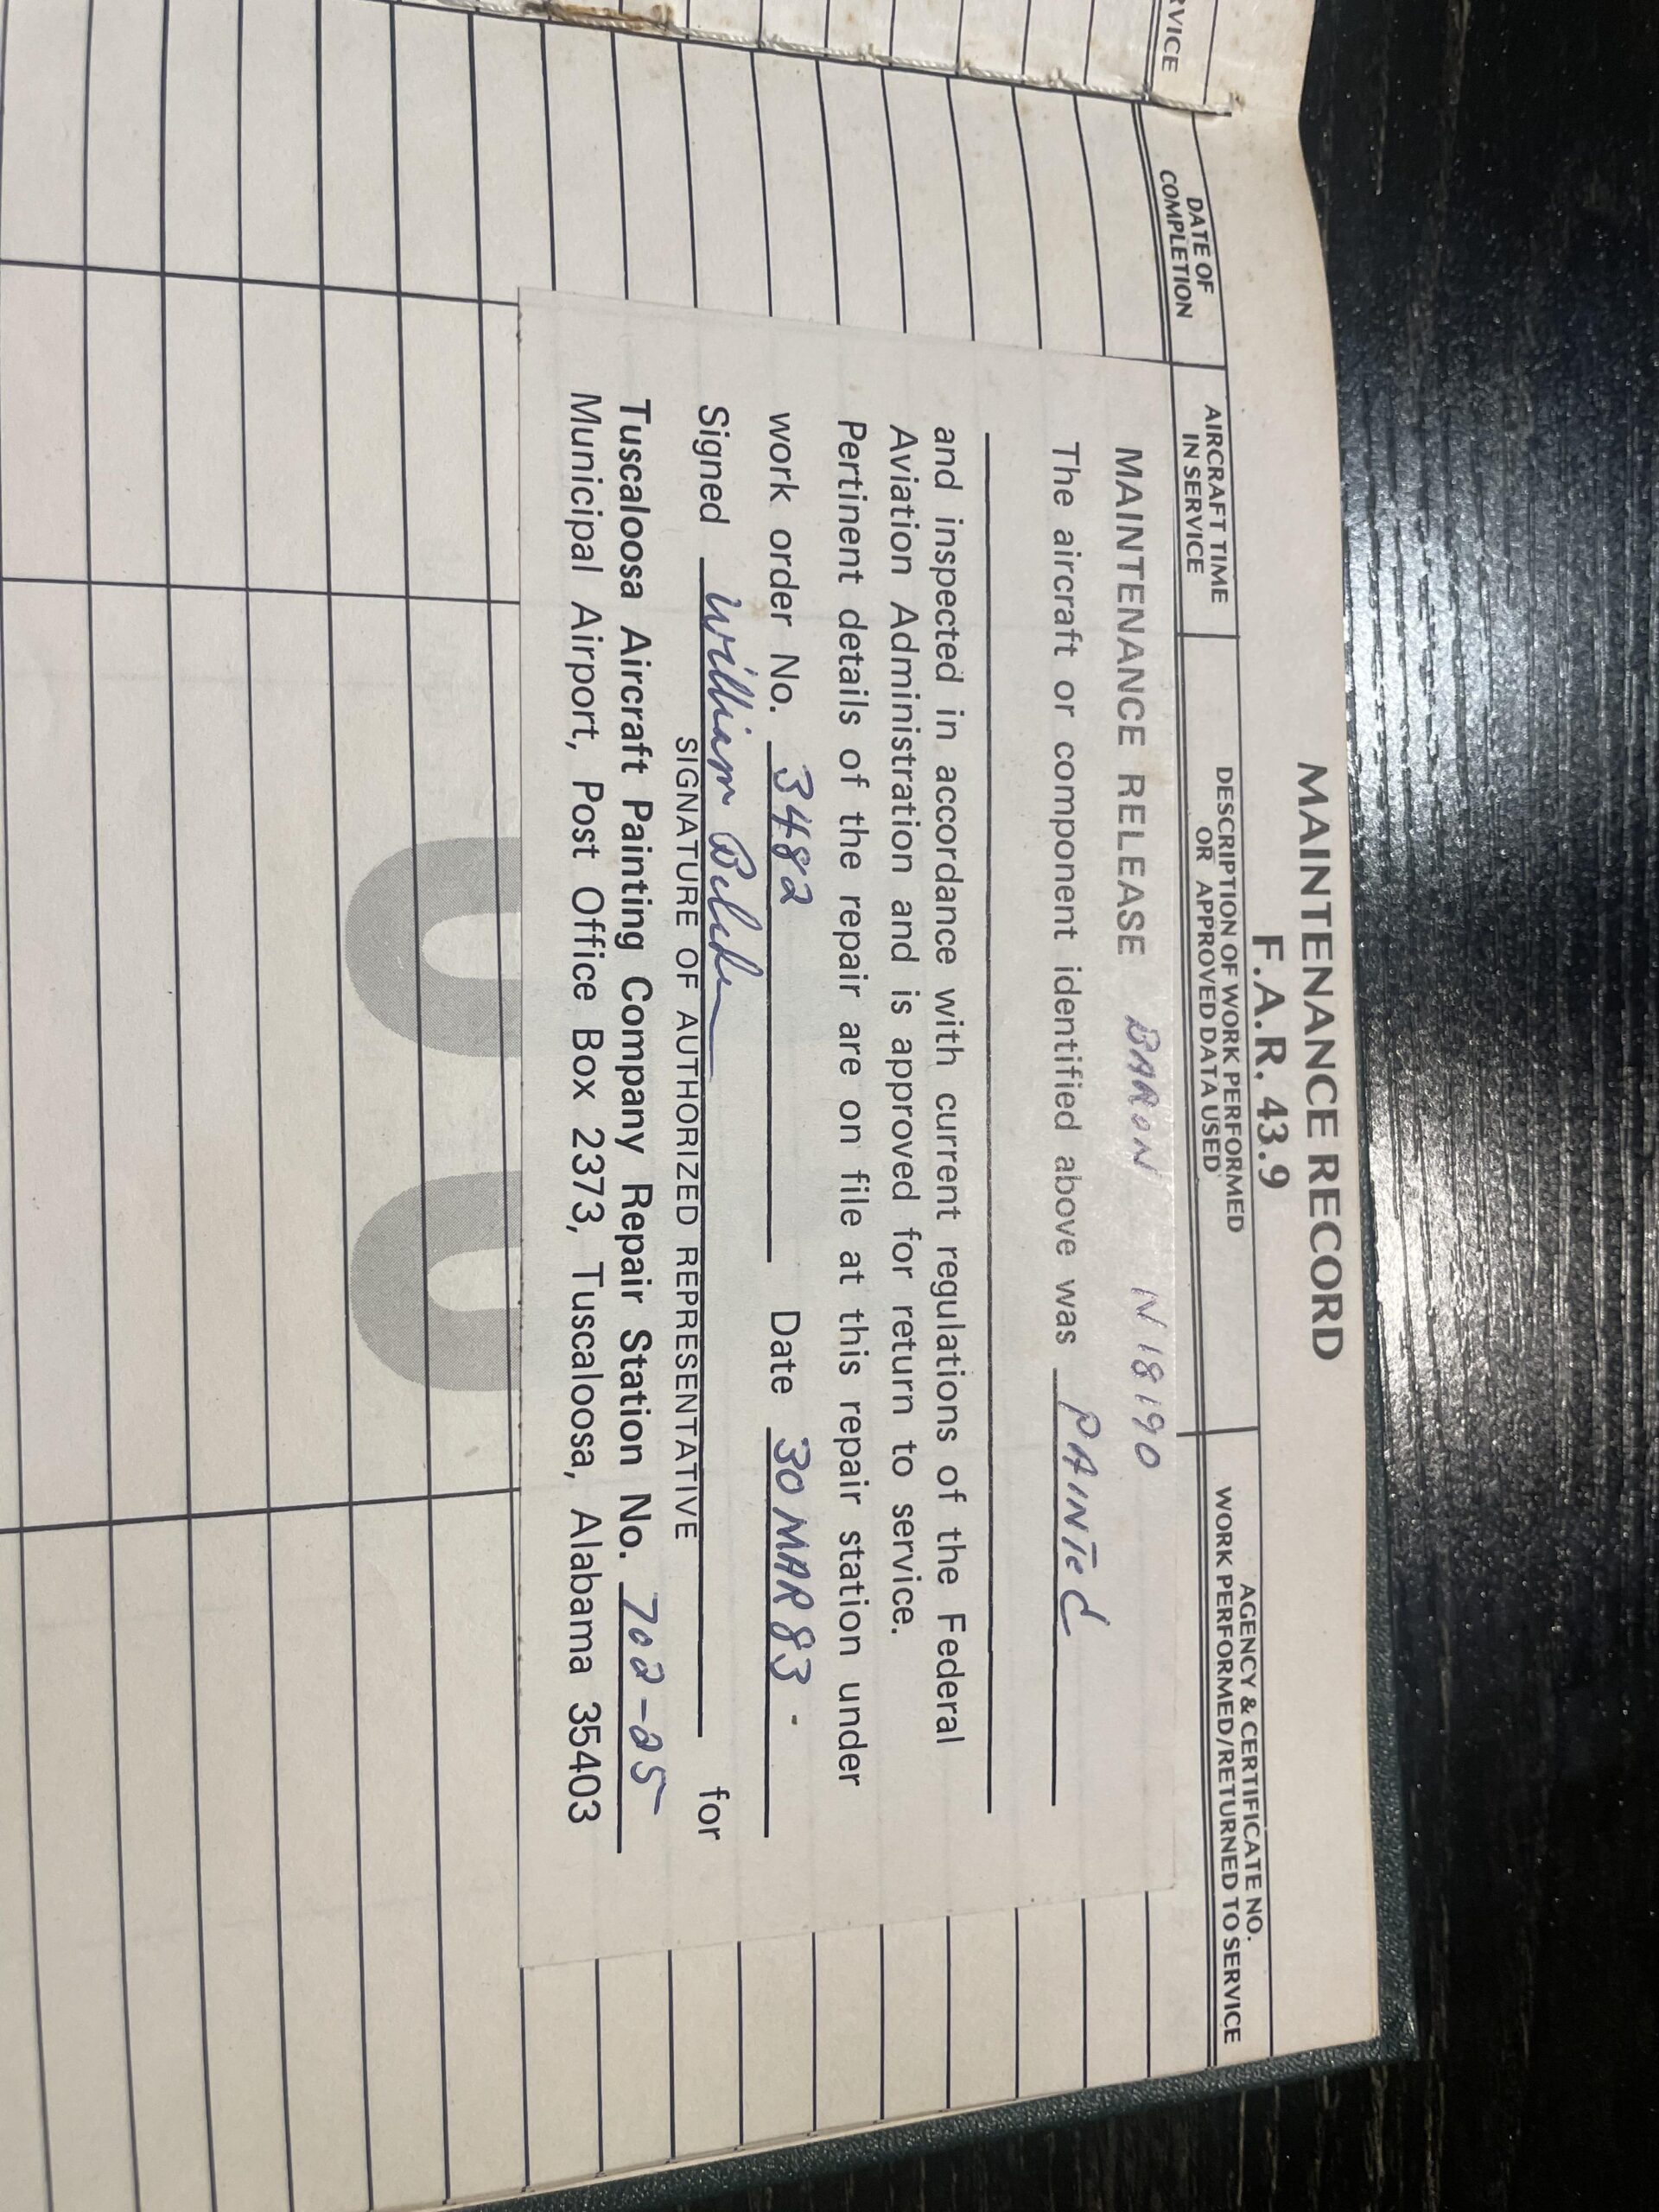 RVICE
MAINTENANCE RECORD
F.A.R. 43.9
DATE OF
COMPLETION
AIRCRAFT TIME
IN SERVICE
DESCRIPTION OF WORK PERFORMED
OR APPROVED DATA USED
AGENCY & CERTIFICATE NO.
WORK PERFORMED/RETURNED TO SERVICE
MAINTENANCE RELEASE BARON N18190
The aircraft or component identified above was PAINTED
and inspected in accordance with current regulations of the Federal
Aviation Administration and is approved for return to service.
Pertinent details of the repair are on file at this repair station under
work order No. 3482 Date 30 MAR 83
Signed William for
SIGNATURE OF AUTHORIZED REPRESENTATIVE
Tuscaloosa Aircraft Painting Company Repair Station No. 702-25
Municipal Airport, Post Office Box 2373, Tuscaloosa, Alabama 35403